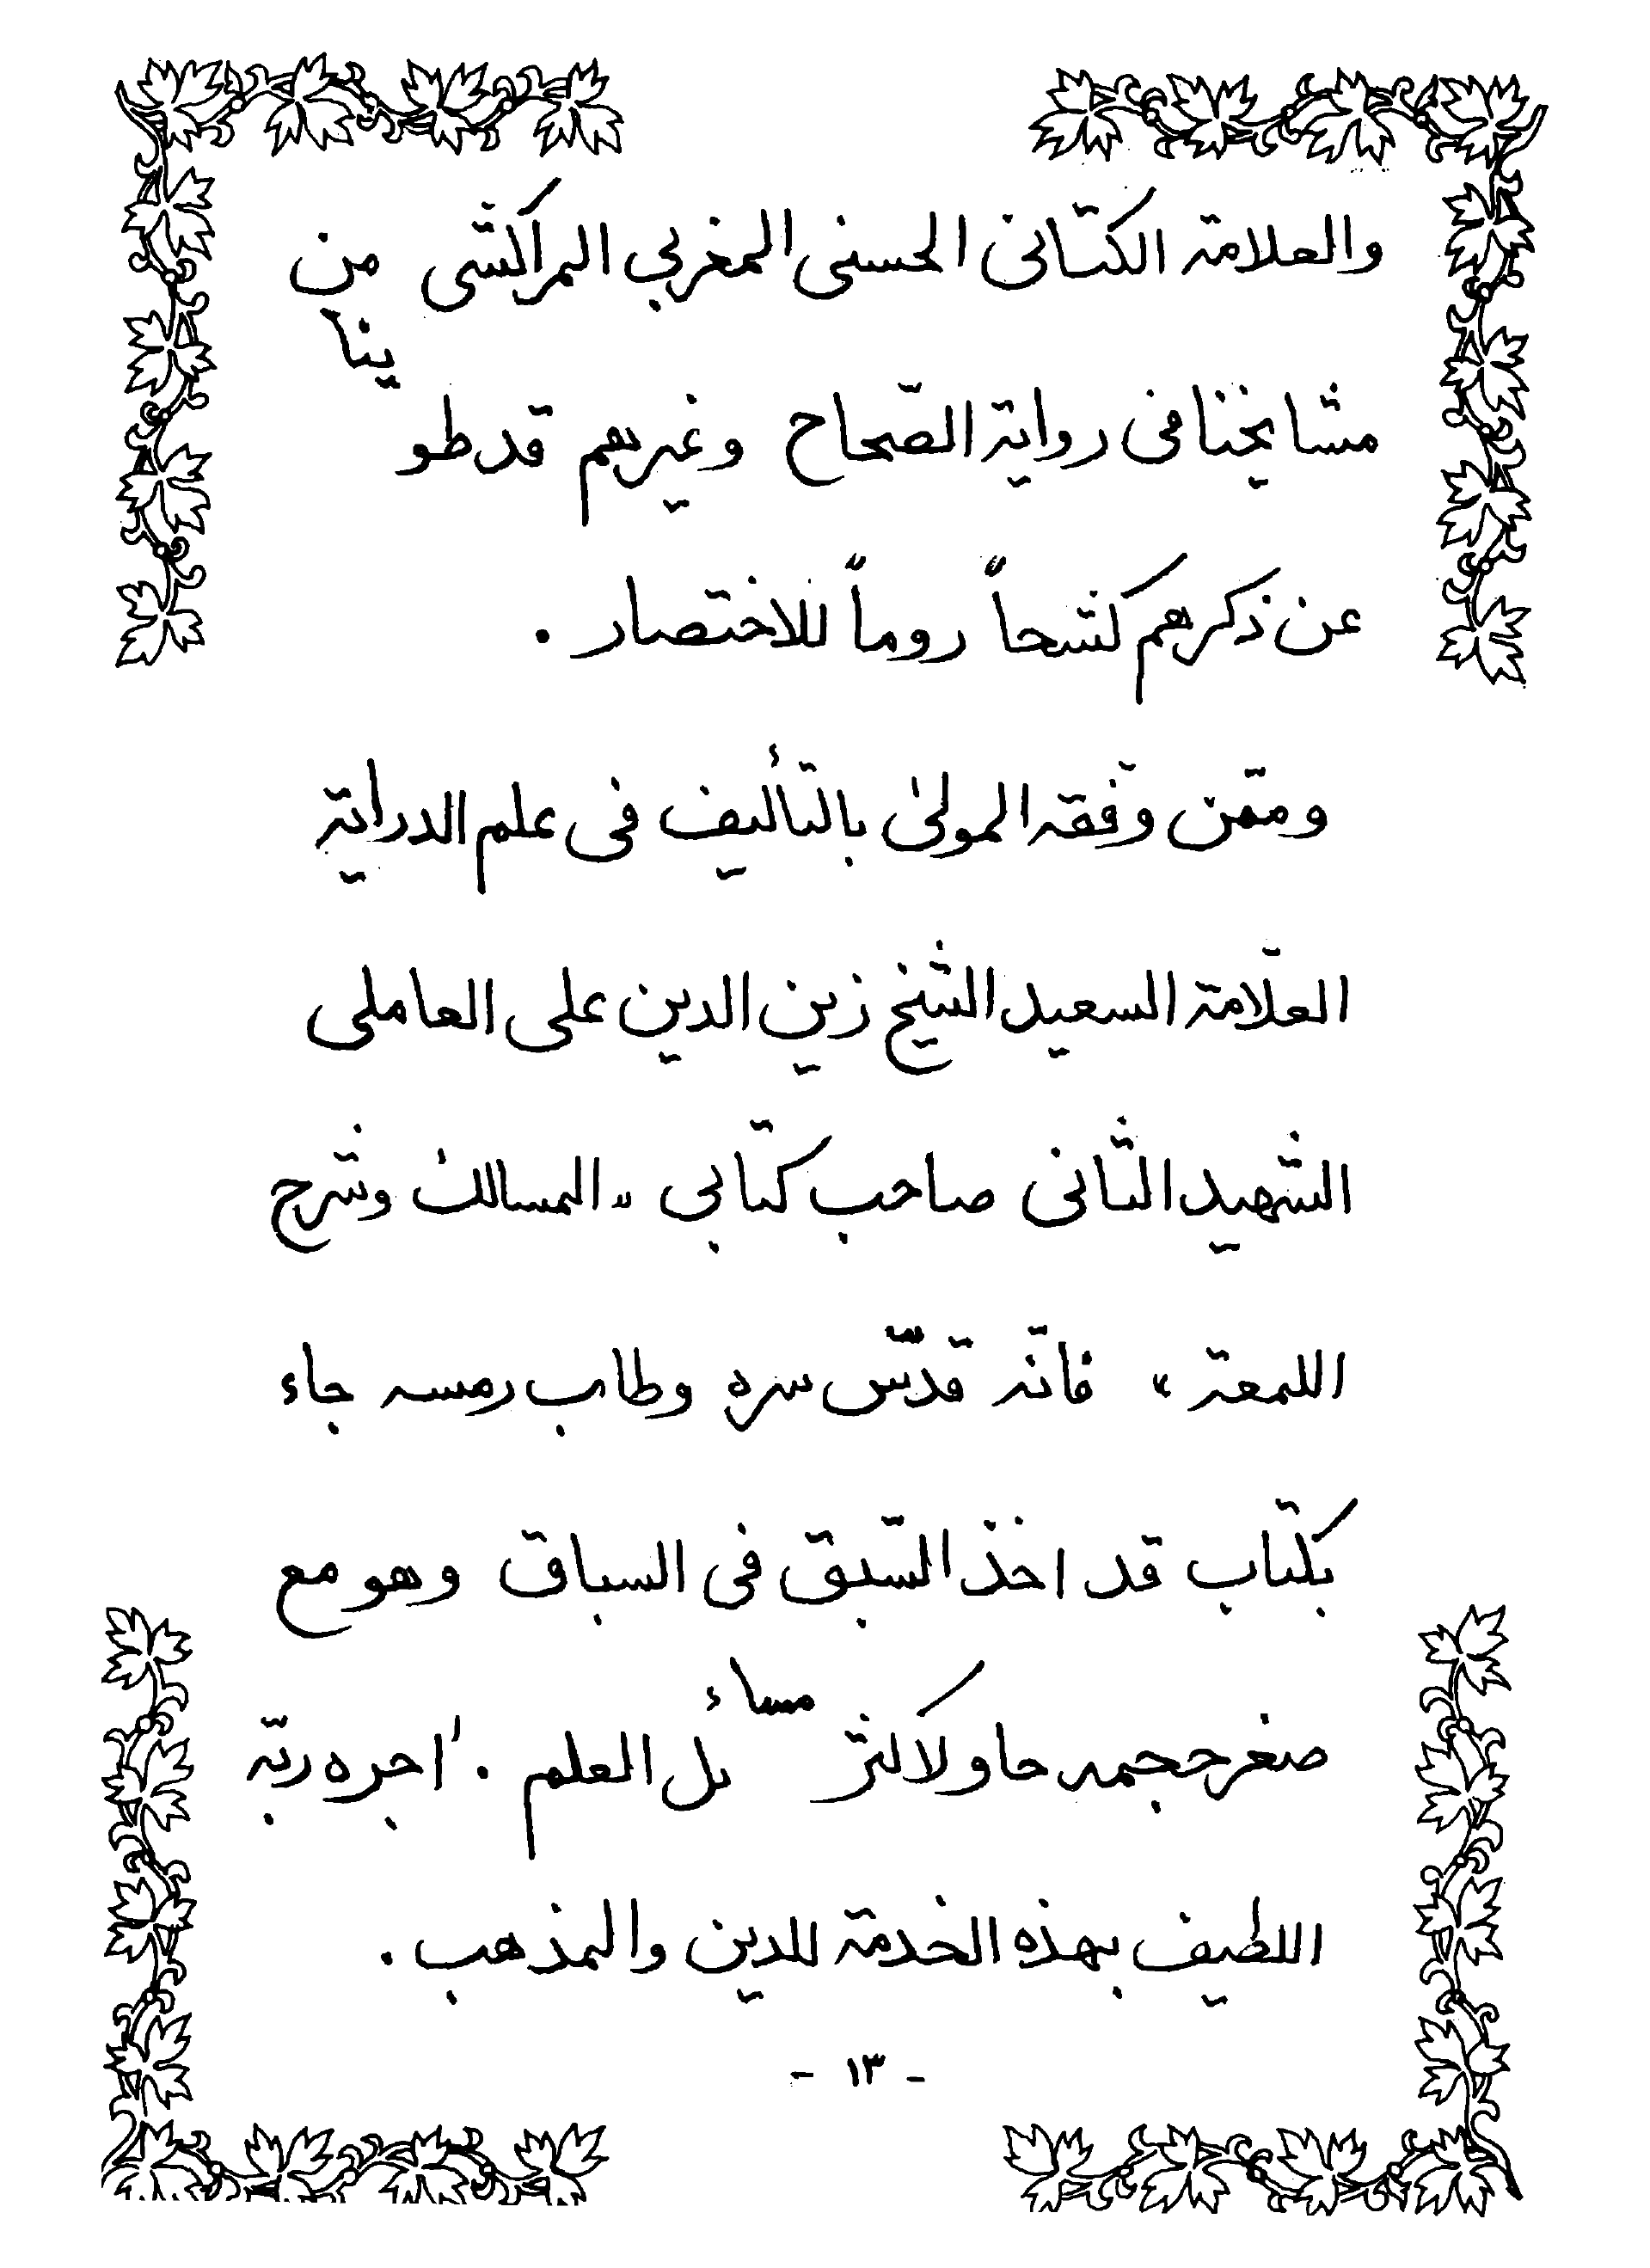 والعلامة الكتانى الحسنى المغربي المراكشى من
مشايخنا فى رواية الصّحاح وغيرهم قد طوينا
عن ذكرهم كشحاً روماً للاختصار .
وممّن وفّقه المولىٰ بالتأليف فى علم الدراية
العلّامة السعيد الشيخ زين الدين على العاملى
الشهيد الثانى صاحب كتابي «المسالك وشرح
اللمعة» فانّه قدّس سره وطاب رمسه جاء
بكتاب قد اخذ السّبق فى السباق وهو مع
صغر حجمه حاو لاكثر مسائل العلم . اجره ربّه
اللطيف بهذه الخدمة للدين والمذهب .
- ١٣ -